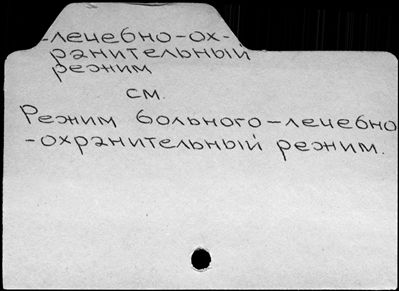 -лечебно-ох-
ранительный
режим
см.
Режим больного-лечебно
-охранительный режим.